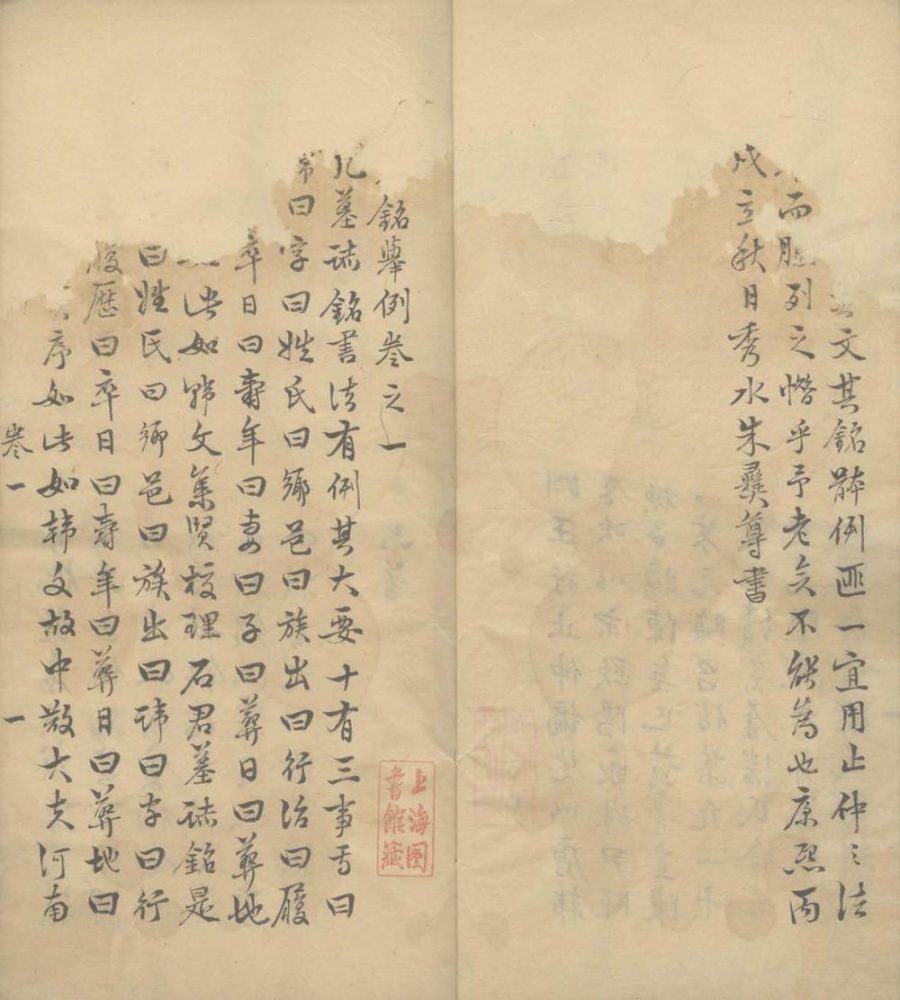 文其銘辭例匪一宜用止仲之法
而胪列之惜乎予老矣不能為也康熙丙
戌立秋日秀水朱彝尊書
銘舉例卷之一
凡墓誌銘書法有例其大要十有三事焉曰
曰字曰姓氏曰鄉邑曰族出曰行治曰履
卒日曰壽年曰妻曰子曰葬日曰葬地
此如韓文集賢校理石君墓誌銘是
曰姓氏曰鄉邑曰族出曰諱曰字曰行
履歷曰卒日曰壽年曰葬日曰葬地曰
序如此如韓文故中散大夫河南
卷一
一
上海图
書館藏